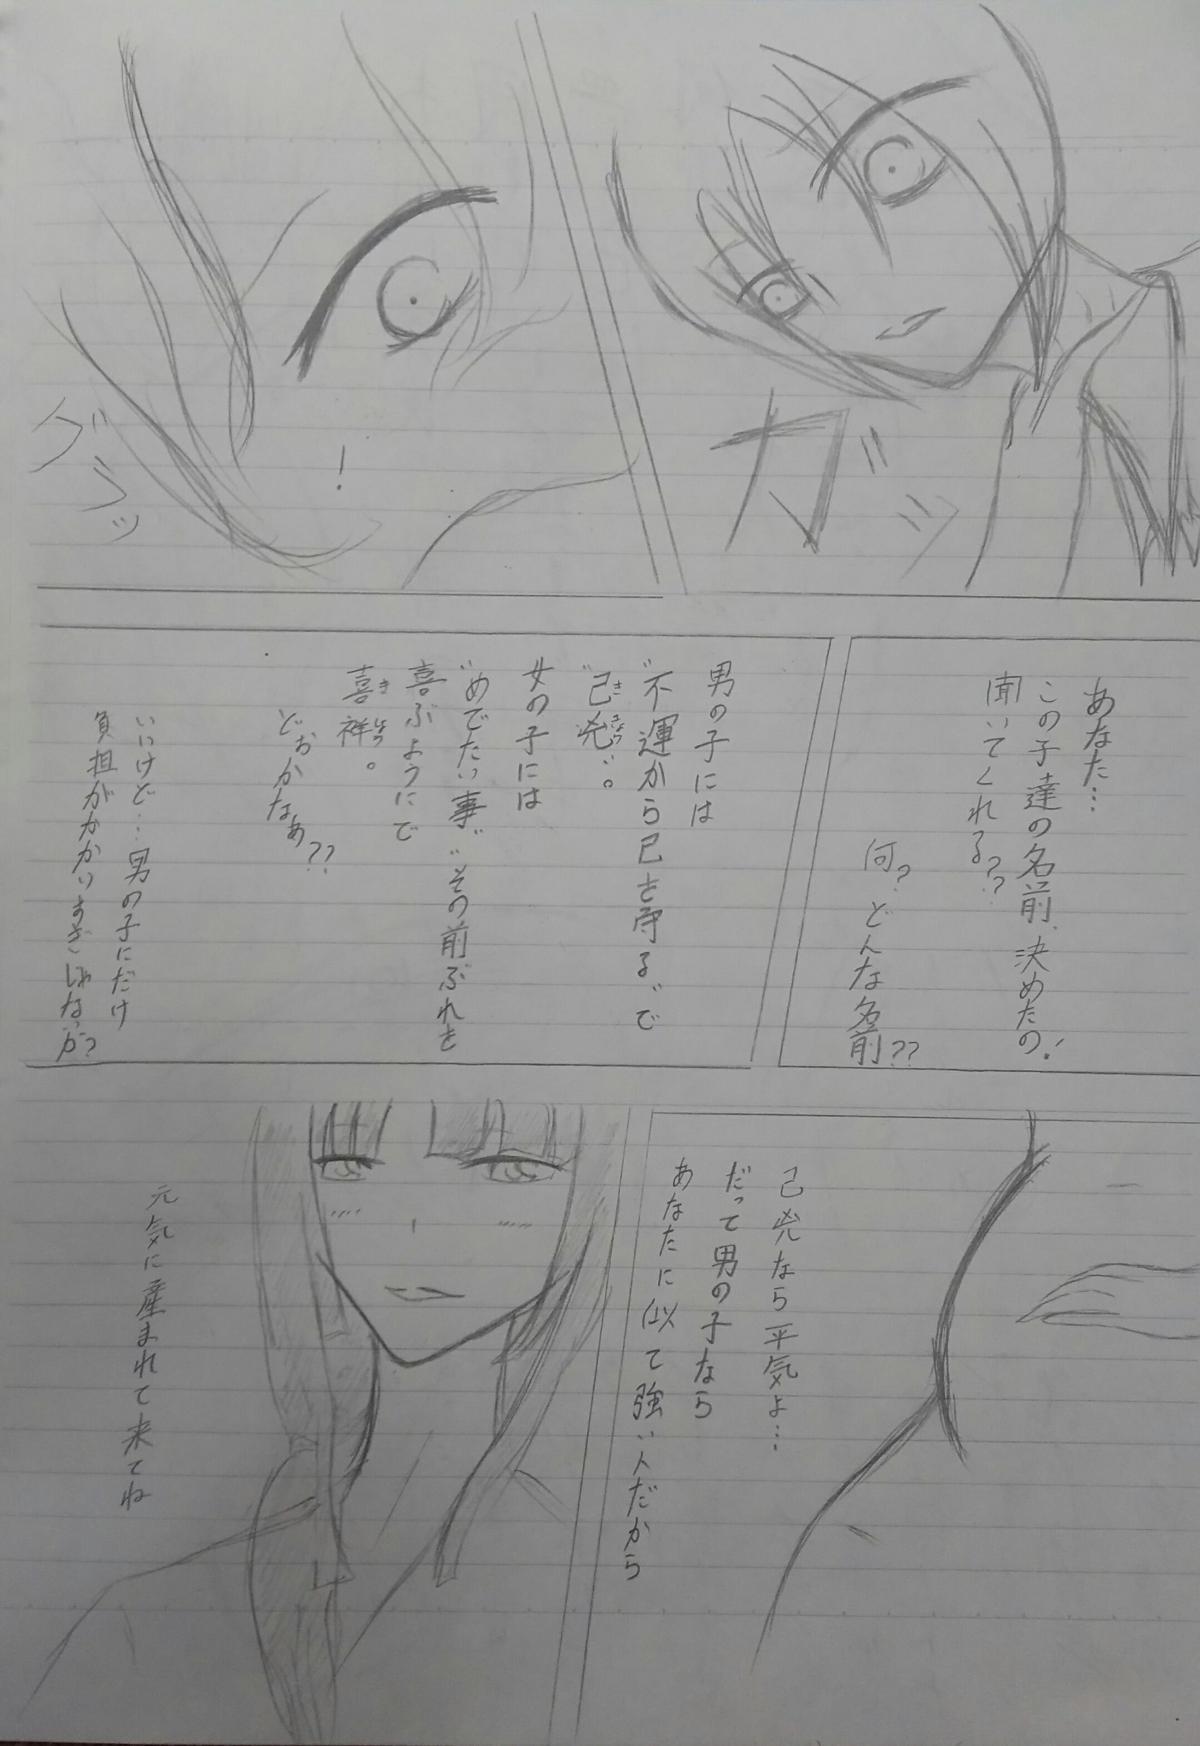 ガッ
グラッ
!
あなた…
この子達の名前、決めたの!
聞いてくれる??
何?どんな名前??
男の子には
"不運から己を守る"で
"己凶"。
き きょう
女の子には
"めでたい事""その前ぶれを
喜ぶようにで
喜祥。
き しょう
どおかなぁ??
いいけど…男の子にだけ
負担がかかりすぎじゃないか?
己兇なら平気よ…
だって男の子なら
あなたに似て強い人だから
元気に産まれて来てね